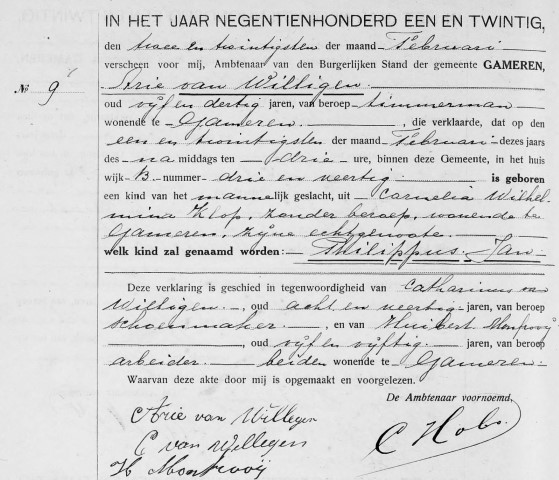 IN HET JAAR NEGENTIENHONDERD EEN EN TWINTIG,
den twee en twintigsten der maand Februari
verscheen voor mij, Ambtenaar van den Burgerlijken Stand der gemeente GAMEREN,
No 9
Arie van Willigen
oud vijf en dertig jaren, van beroep timmerman
wonende te Gameren, die verklaarde, dat op den
een en twintigsten der maand Februari dezes jaars
des na middags ten drie ure, binnen deze Gemeente, in het huis
wijk B. nummer drie en veertig is geboren
een kind van het mannelijk geslacht, uit Cornelia Wilhel-
mina Klop, zonder beroep, wonende te
Gameren, zijne echtgenoote
welk kind zal genaamd worden: Philippus Jan
Deze verklaring is geschied in tegenwoordigheid van Catharinus van
Willigen, oud acht en veertig jaren, van beroep
schoenmaker, en van Huibert Monfrooij
, oud vijf en vijftig jaren, van beroep
arbeider beiden wonende te Gameren
Waarvan deze akte door mij is opgemaakt en voorgelezen.
De Ambtenaar voornoemd,
Arie van Willegen
C van Willegen
C Hobo
H Monfrooij